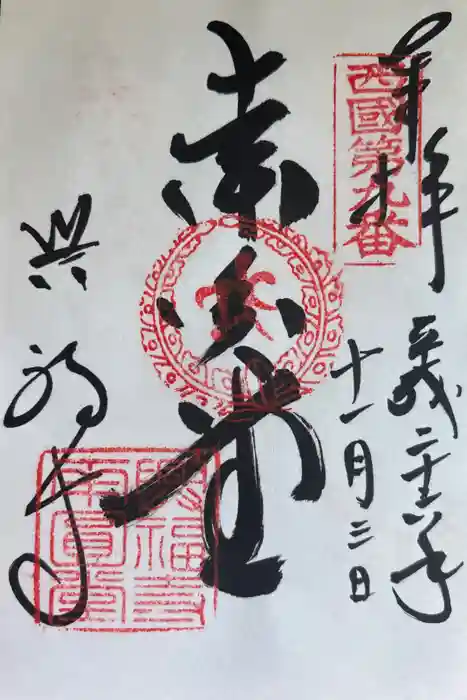 奉拝
西國第九番
平成二十六年
十一月三日
南円堂
興福寺
興福寺
南圓堂